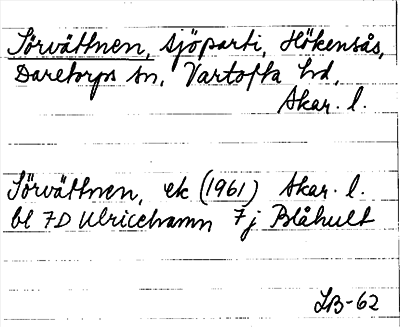 Sörvättnen, sjöparti, Hökensås,
Daretorps sn, Vartofta hd,
Skar. l.
Sörvättnen, ek (1961) Skar. l.
bl 7D Ulricehamn 7j Blåhult
LB-62